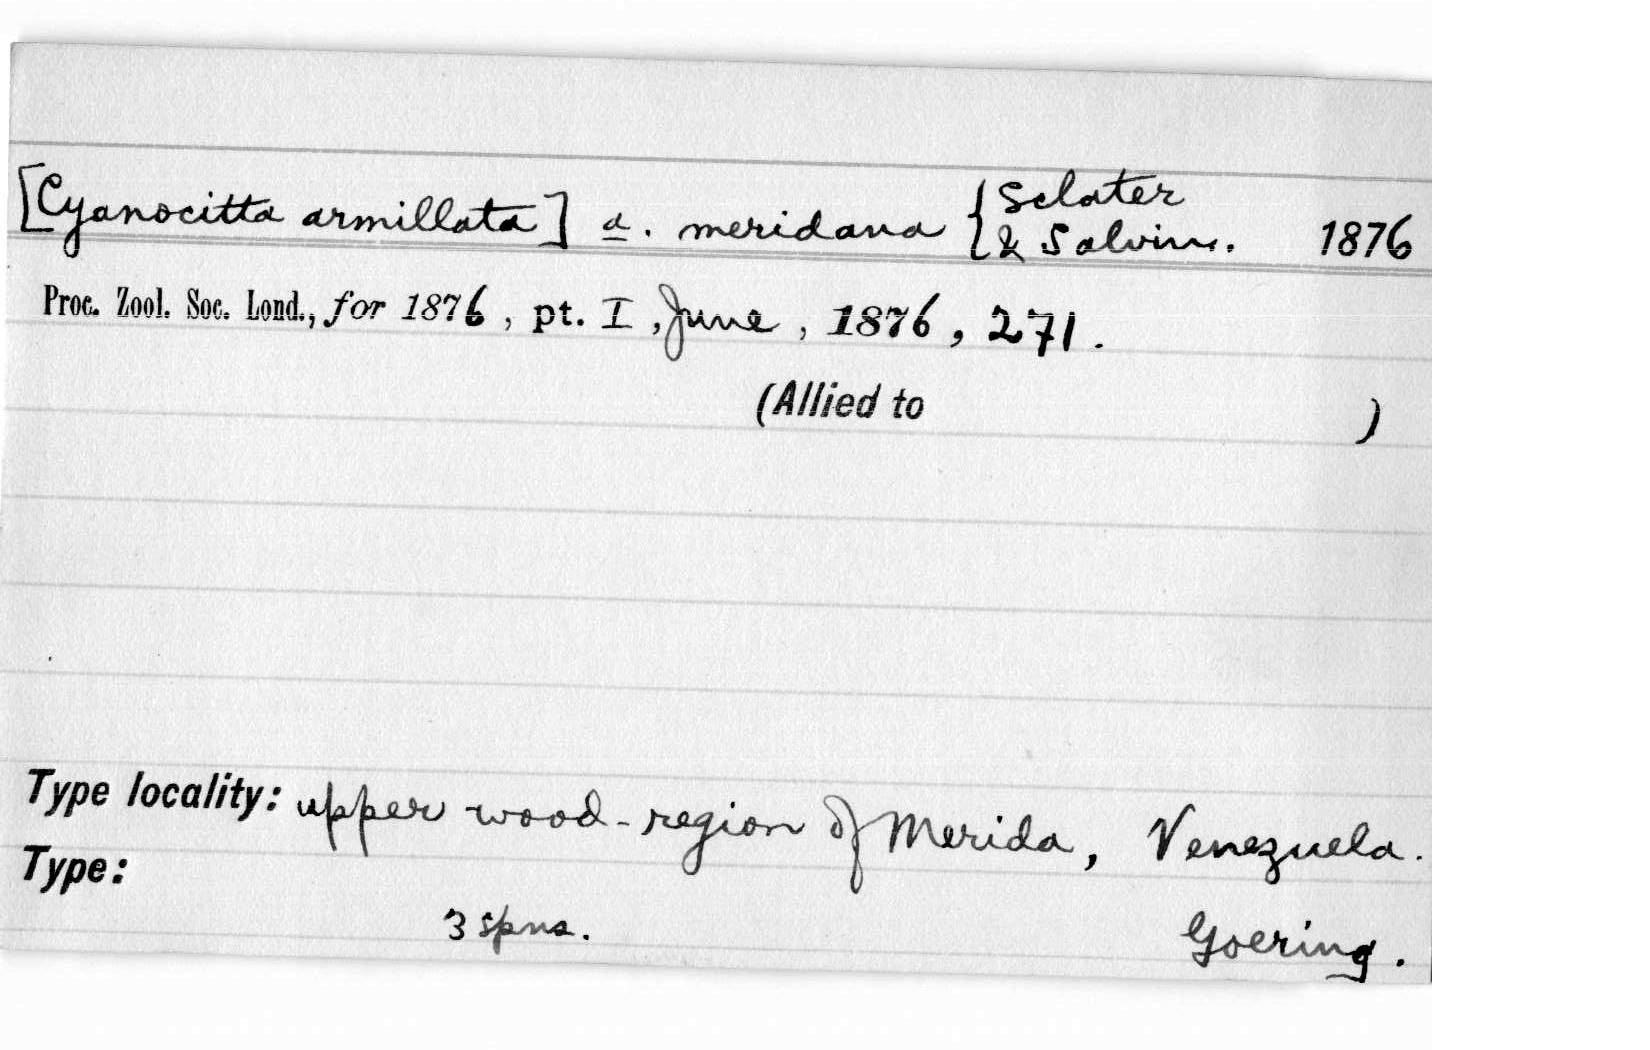 [Cyanocitta armillata] a. meridana { Sclater & Salvin. 1876
Proc. Zool. Soc. Lond., for 1876, pt. I, June, 1876, 271.
(Allied to )
Type locality: upper wood-region of Merida, Venezuela.
Type:
3 spns. Goering.